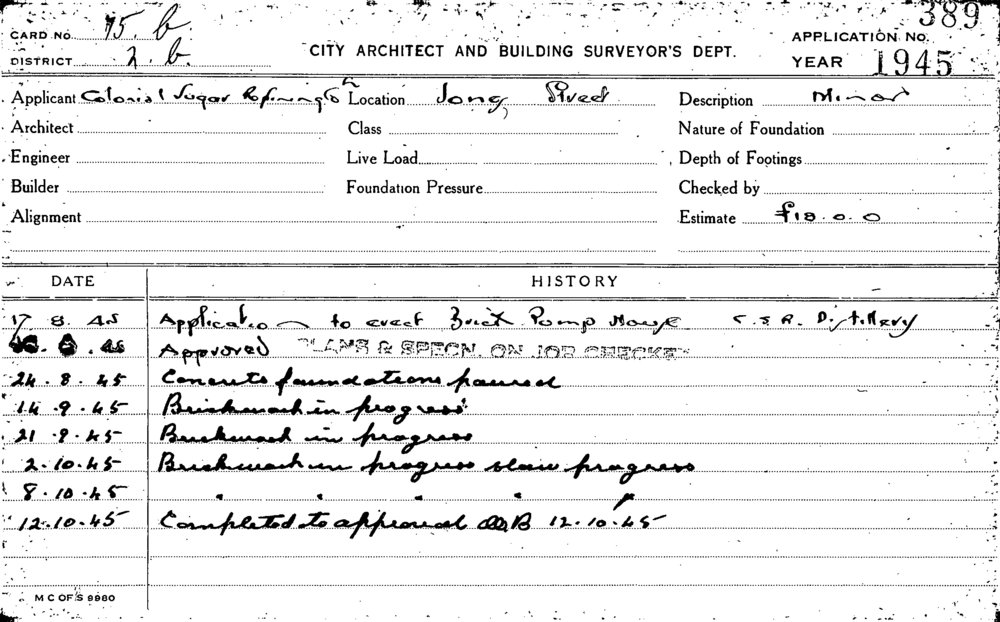 CARD NO. 75. b.
DISTRICT 2. b.
CITY ARCHITECT AND BUILDING SURVEYOR'S DEPT.
389
APPLICATION NO.
YEAR 1945
Applicant Colonial Sugar Refining Co Location Jones Street Description Minor
Architect Class Nature of Foundation
Engineer Live Load Depth of Footings
Builder Foundation Pressure Checked by
Alignment Estimate £18.0.0
DATE HISTORY
17 8. 45 Application to erect Brick Pump House C.S.R. Distillery
Approved PLANS & SPECN. ON JOB CHECKED
24. 8. 45 Concrete foundations poured
14. 9. 45 Brickwork in progress
21. 9. 45 Brickwork in progress
2. 10. 45 Brickwork in progress slow progress
8. 10. 45 " " " " "
12. 10. 45 Completed to approval 12. 10. 45
M C OF S 9980